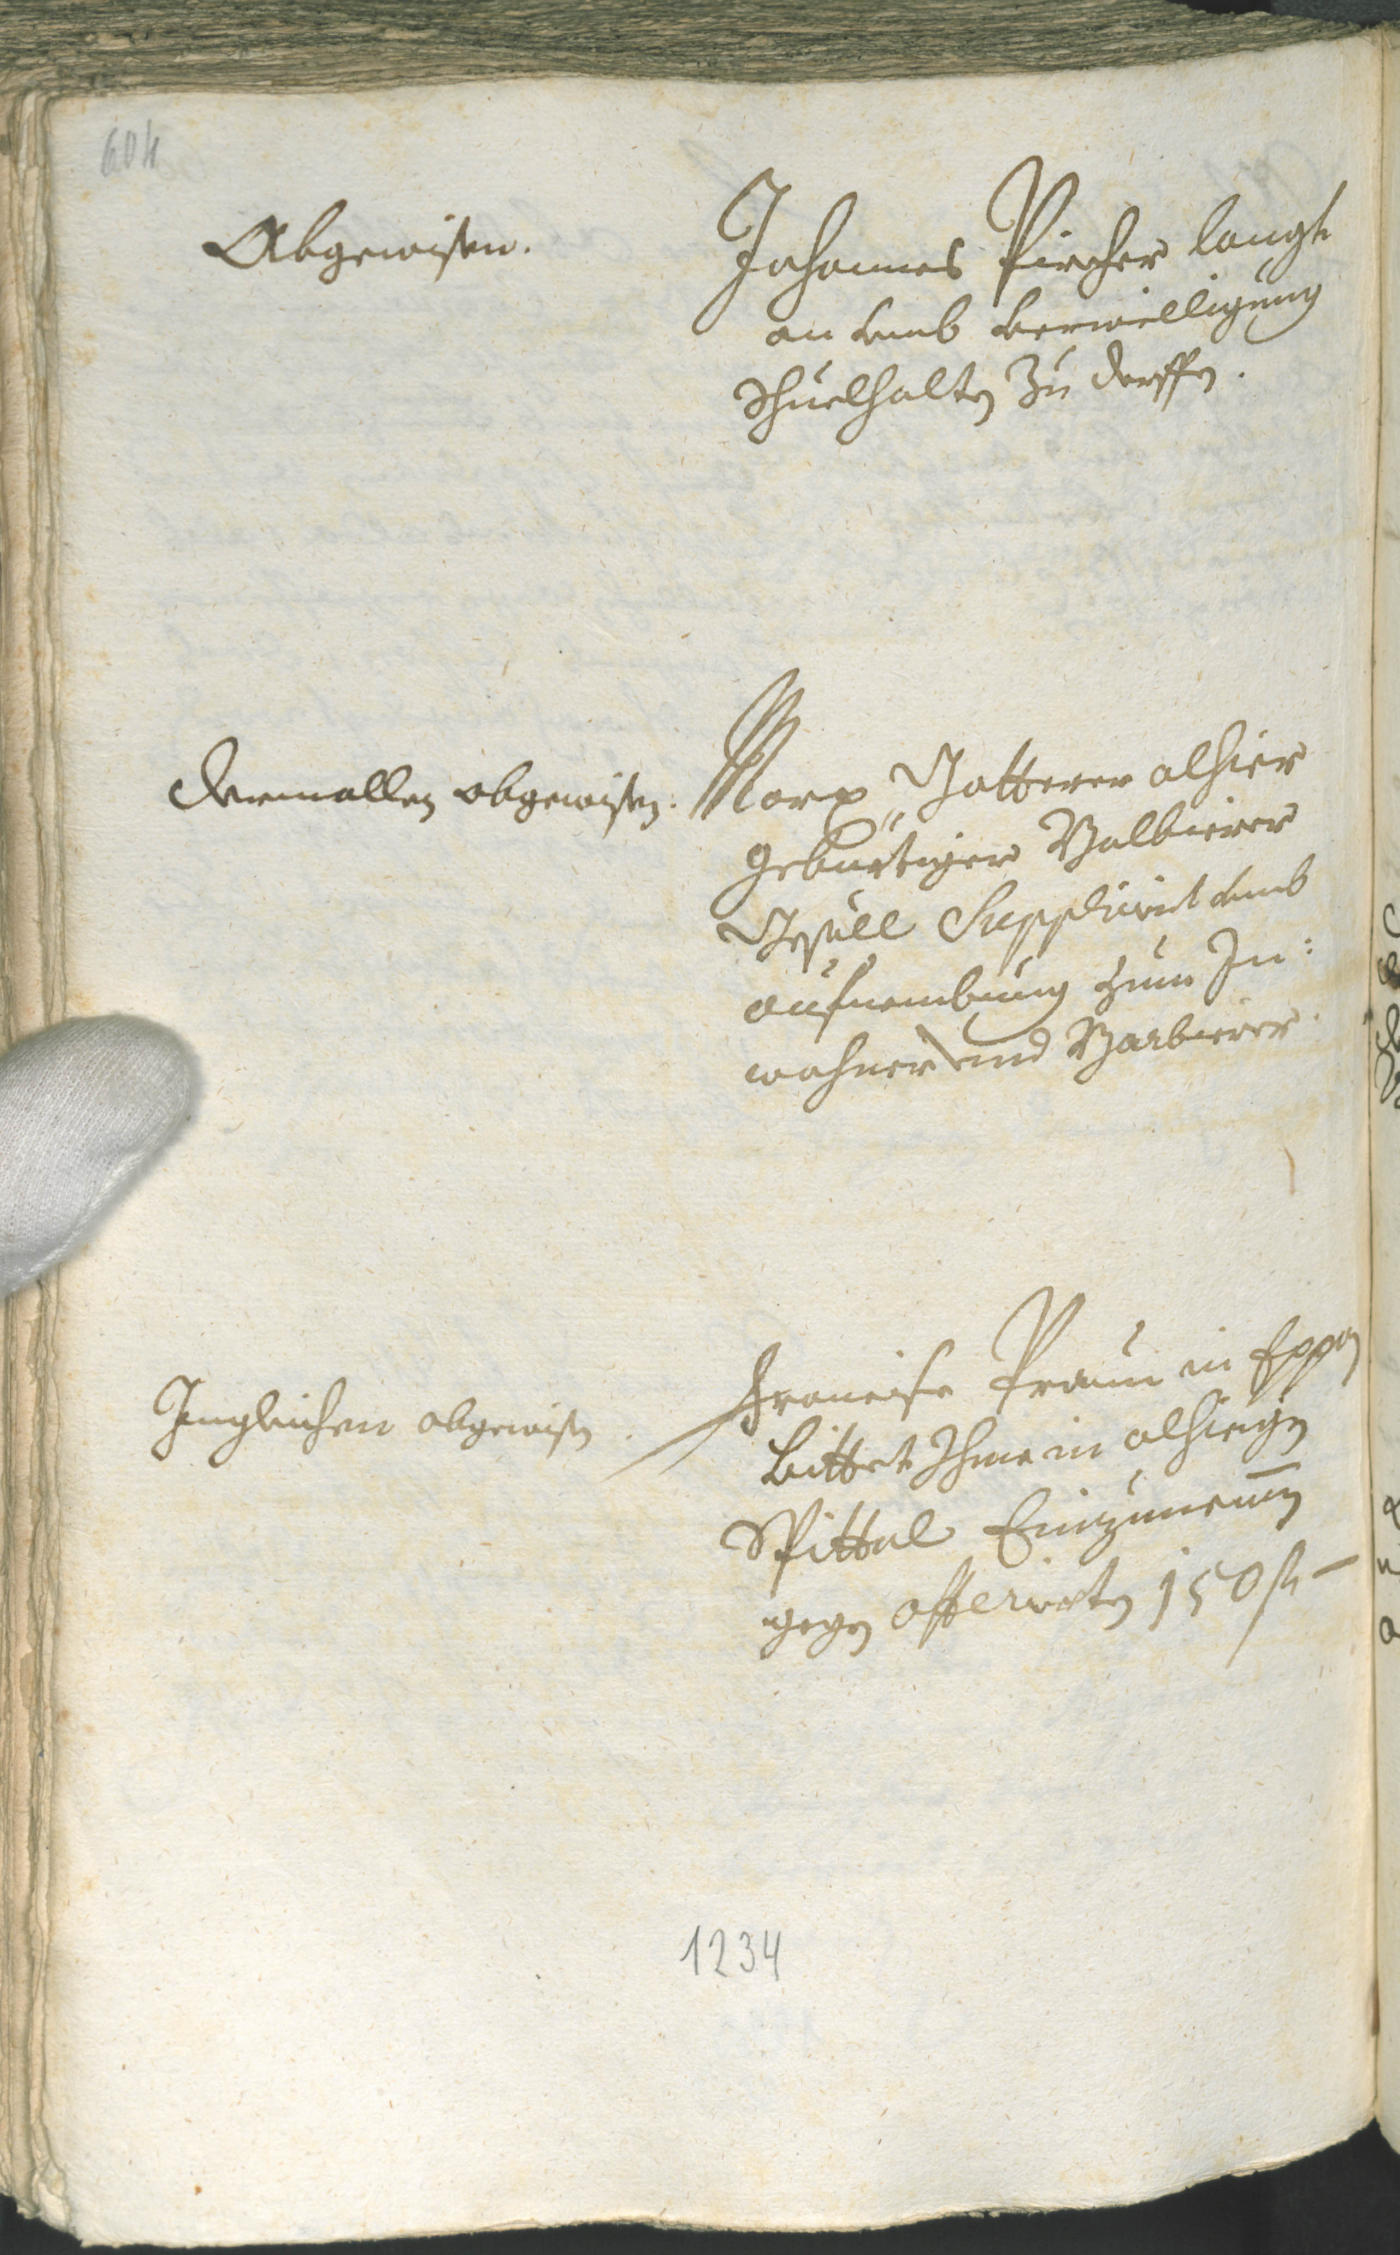 604
Abgewisen.
Johannes Pircher langt
an umb verwilligung
Schuelhalten zu derffen.
Dermallen abgewisen.
Marx Gatterer alhier
gebürtiger Balbierer
Gesöll Supplicirt umb
aufnembung zum In:
wohner und Barbierer.
Jngleichen abgewisen.
Francisc Praun in Eppan
bittet Ihme in alhiegen
Spittal Einzunemen
gegen offerierten 150 fl
1234